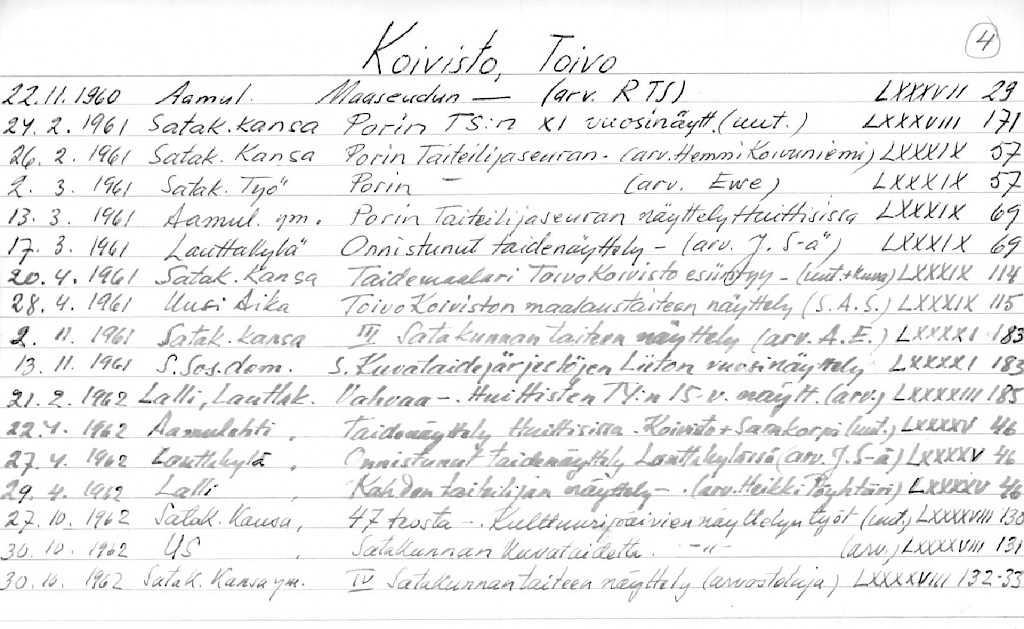 4
Koivisto, Toivo
22.11.1960 Aamul. Maaseudun — (arv. R TS) LXXXVII 29
24.2.1961 Satak. Kansa Porin TS:n XI vuosinäytt. (uut.) LXXXVIII 171
26.2.1961 Satak. Kansa Porin Taiteilijaseuran - (arv. Hemmi Koivuniemi) LXXXIX 57
2.3.1961 Satak. Työ Porin — (arv. Ewe) LXXXIX 57
13.3.1961 Aamul. ym. Porin Taiteilijaseuran näyttely Huittisissa LXXXIX 69
17.3.1961 Lauttakylä Onnistunut taidenäyttely - (arv. J. S-ä) LXXXIX 69
20.4.1961 Satak. Kansa Taidemaalari Toivo Koivisto esiintyy - (uut.+kuva) LXXXIX 114
28.4.1961 Uusi Aika Toivo Koiviston maalaustaiteen näyttely (S.A.S.) LXXXIX 115
2.11.1961 Satak. Kansa III Satakunnan taiteen näyttely (arv. A.E.) LXXXXI 183
13.11.1961 S. Sos.dem. S. Kuvataidejärjestöjen Liiton vuosinäyttely LXXXXI 183
21.2.1962 Lalli, Lauttak. Vahvaa -. Huittisten TY:n 15-v. näytt. (arv.) LXXXXIII 185
22.4.1962 Aamulehti, Taidenäyttely Huittisissa. Koivisto + Samkorpi (uut.) LXXXXV 46
27.4.1962 Lauttakylä, Onnistunut taidenäyttely Lauttakylässä (arv. J.S-ä) LXXXXV 46
29.4.1962 Lalli, Kahden taiteilijan näyttely -. (arv. Heikki Pöyhtäri) LXXXXV 46
27.10.1962 Satak. Kansa, 47 teosta -. Kulttuuripäivien näyttelyn työt (uut.) LXXXXVIII 130
30.10.1962 US, Satakunnan kuvataidetta. -"- (arv.) LXXXXVIII 131
30.10.1962 Satak. Kansa ym. IV Satakunnan taiteen näyttely (arvosteluja) LXXXXVIII 132-33